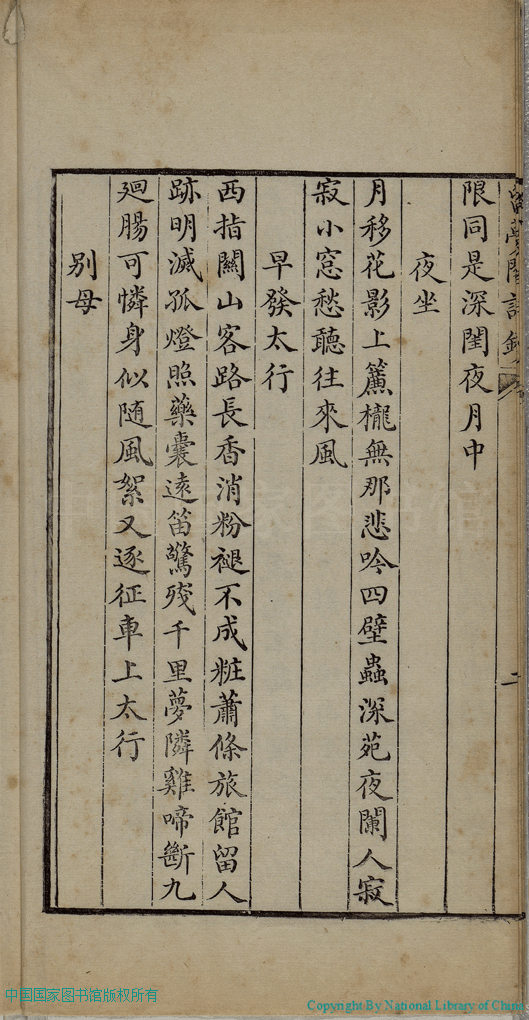 限同是深閨夜月中
夜坐
月移花影上簾櫳無那悲吟四壁蟲深苑夜闌人寂
寂小窓愁聽往來風
早發太行
西指關山客路長香消粉褪不成粧蕭條旅館留人
跡明滅孤燈照藥囊遠笛驚殘千里夢隣雞啼斷九
廻腸可憐身似随風絮又逐征車上太行
別母
二
中国国家图书馆版权所有
Copyright By National Library of China